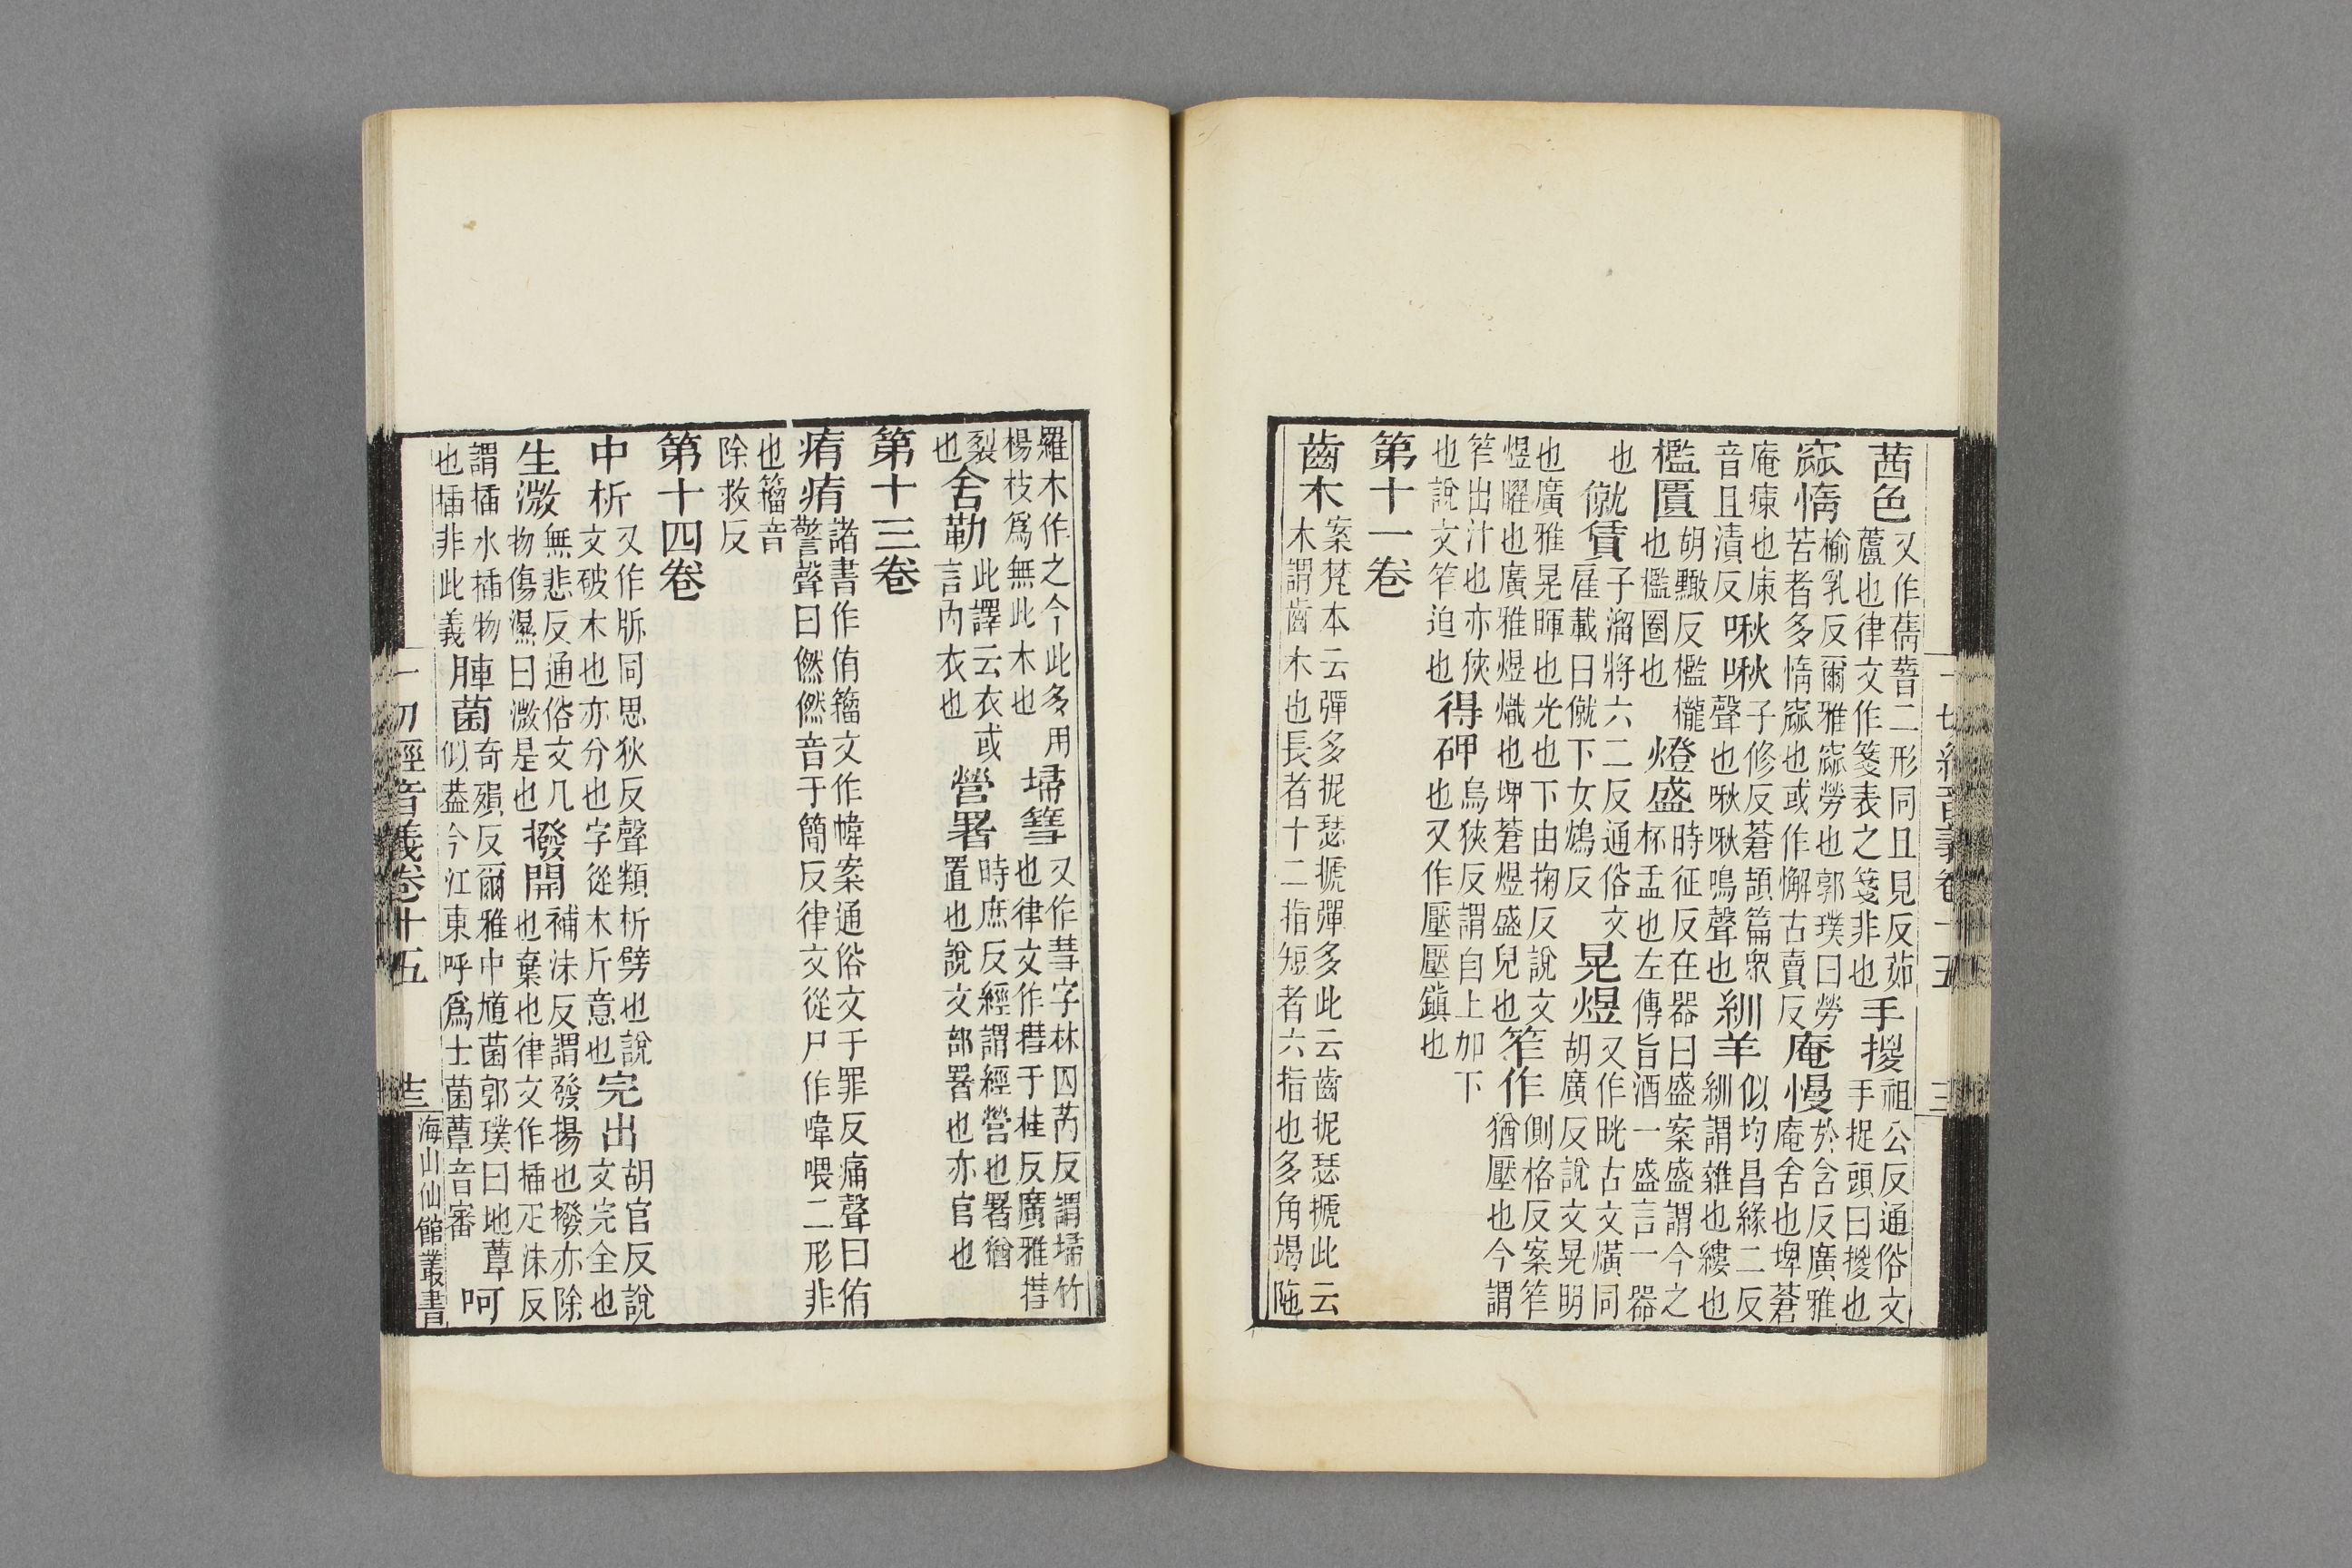 茜色 又作蒨蒨二形同且見反茹蘆也律文作箋表之箋非也 手㨑 祖公反通俗文手捉頭曰㨑也
窳惰 榆乳反爾雅窳勞也郭璞曰勞苦者多惰窳也或作懈古賣反 庵慢 於含反廣雅庵舍也埤蒼
庵㾄也康音且漬反 啾啾 子修反蒼頡篇眾聲也啾啾鳴聲也 紃羊 似均昌緣二反紃謂雜也縷也
檻匱 胡黤反檻櫳也檻圈也 燈盛 時征反在器曰盛案盛謂今之杯盂也左傳旨酒一盛言一器
也 僦賃 子溜將六二反通俗文雇載曰僦下女鴆反 晃煜 又作晄古文爌同胡廣反說文晃明
也廣雅晃暉也光也下由掬反說文煜曜也廣雅煜熾也埤蒼煜盛皃也 笮作 側格反案笮猶壓也今謂
笮出汁也亦狹也說文笮迫也 得砰 烏狹反謂自上加下也又作壓壓鎮也
第十一卷
齒木 案梵本云彈多抳瑟搋彈多此云齒抳瑟搋此云木謂齒木也長者十二指短者六指也多角竭陁
一切經音義卷十五
羅木作之今此多用楊枝爲無此木也 埽篲 又作彗字林囚芮反謂埽竹也律文作㨹于桂反廣雅㨹
裂也 舍勒 此譯云衣或言內衣也 營署 時庶反經謂經營也署猶置也說文部署也亦官也
第十三卷
痏痏 諸書作侑籀文作 案通俗文于罪反痛聲曰侑警聲曰 音于簡反律文從尸作喡喂二形非
也籀音除救反
第十四卷
中析 又作㸞同思狄反聲類析劈也說文破木也亦分也字從木斤意也 完出 胡官反說文完全也
生溦 無悲反通俗文几物傷濕曰溦是也 撥開 補沬反謂發揚也撥亦除也棄也律文作㨒疋沬反
謂㨒水㨒物也㨒非此義 䏣菌 奇殞反爾雅中馗菌郭璞曰地蕈似葢今江東呼爲士菌蕈音審 呵
一切經音義卷十五
海山仙館叢書